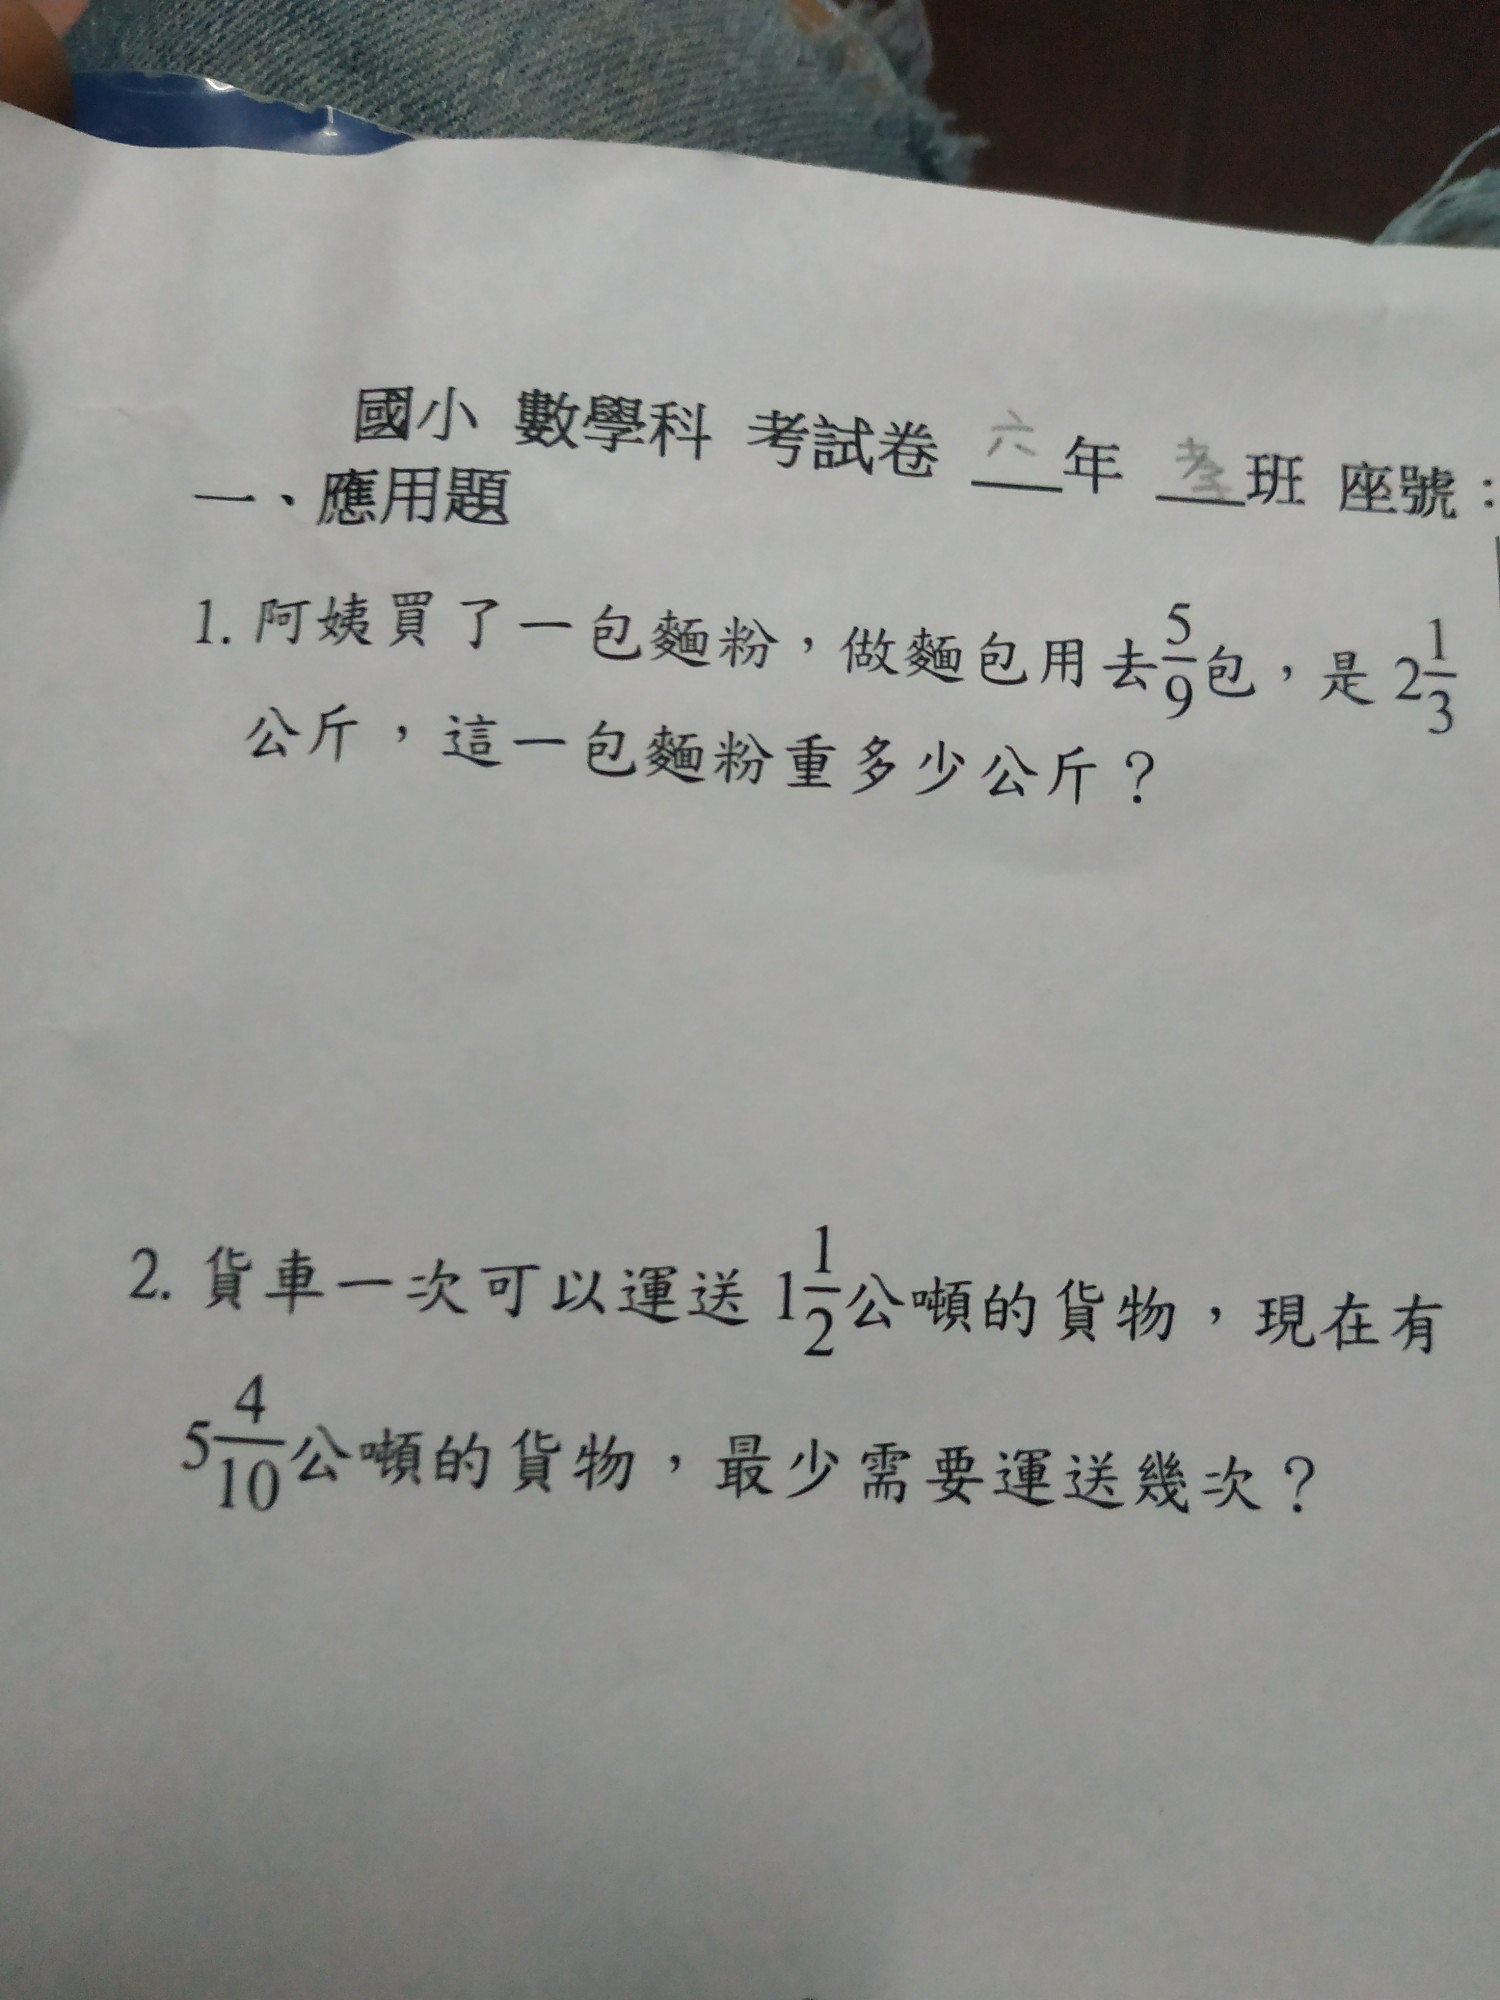 國小 數學科 考試卷 六年 孝班 座號:
一、應用題
1. 阿姨買了一包麵粉,做麵包用去5/9包,是 2 1/3
公斤,這一包麵粉重多少公斤?
2. 貨車一次可以運送 1 1/2公噸的貨物,現在有
5 4/10公噸的貨物,最少需要運送幾次?